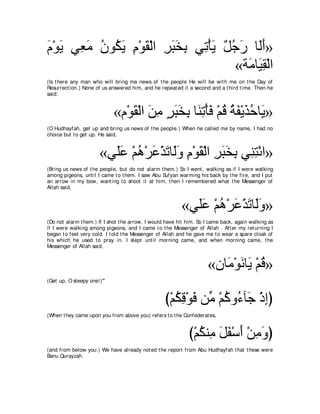 «أَلَا رَجُلٌ يَأْتِي بِخَبَرِ الْقَوْمِ يَكُونُ مَعِي يَوْمَ
الْقِيَامَةِ»
(Is there any man who will bring me news of the people He will be with me on the Day of
Resurrection.) None of us answered him, and he repeated it a second and a third time. Then he
said:
«يَاحُذَيْفَةُ قُمْ فَأْتِنَا بِخَبَرٍ مِنَ الْقَوْمِ»
(O Hudhayfah, get up and bring us news of the people.) When he called me by name, I had no
choice but to get up. He said,
«ائْتِنِي بِخَبَرِ الْقَوْمِ وَلَاتَذْعَرْهُمْ عَلَيَّ»
(Bring us news of the people, but do not alarm them.) So I went, walking as if I were walking
among pigeons, until I came to them. I saw Abu Sufyan warming his back by the fire, and I put
an arrow in my bow, wanting to shoot it at him, then I remembered what the Messenger of
Allah said,
«وَلَاتَذْعَرْهُمْ عَلَيَّ»
(Do not alarm them.) If I shot the arrow, I would have hit him. So I came back, again walking as
if I were walking among pigeons, and I came to the Messenger of Allah . After my returning I
began to feel very cold. I told the Messenger of Allah and he gave me to wear a spare cloak of
his which he used to pray in. I slept until morning came, and when morning came, the
Messenger of Allah said,
«قُمْ يَانَوْمَان»
(Get up, O sleepy one!)'''
(إِذْ جَآءُوكُمْ مِّن فَوْقِكُمْ)
(When they came upon you from above you) refers to the Confederates,
(وَمِنْ أَسْفَلَ مِنكُمْ)
(and from below you.) We have already noted the report from Abu Hudhayfah that these were
Banu Qurayzah.